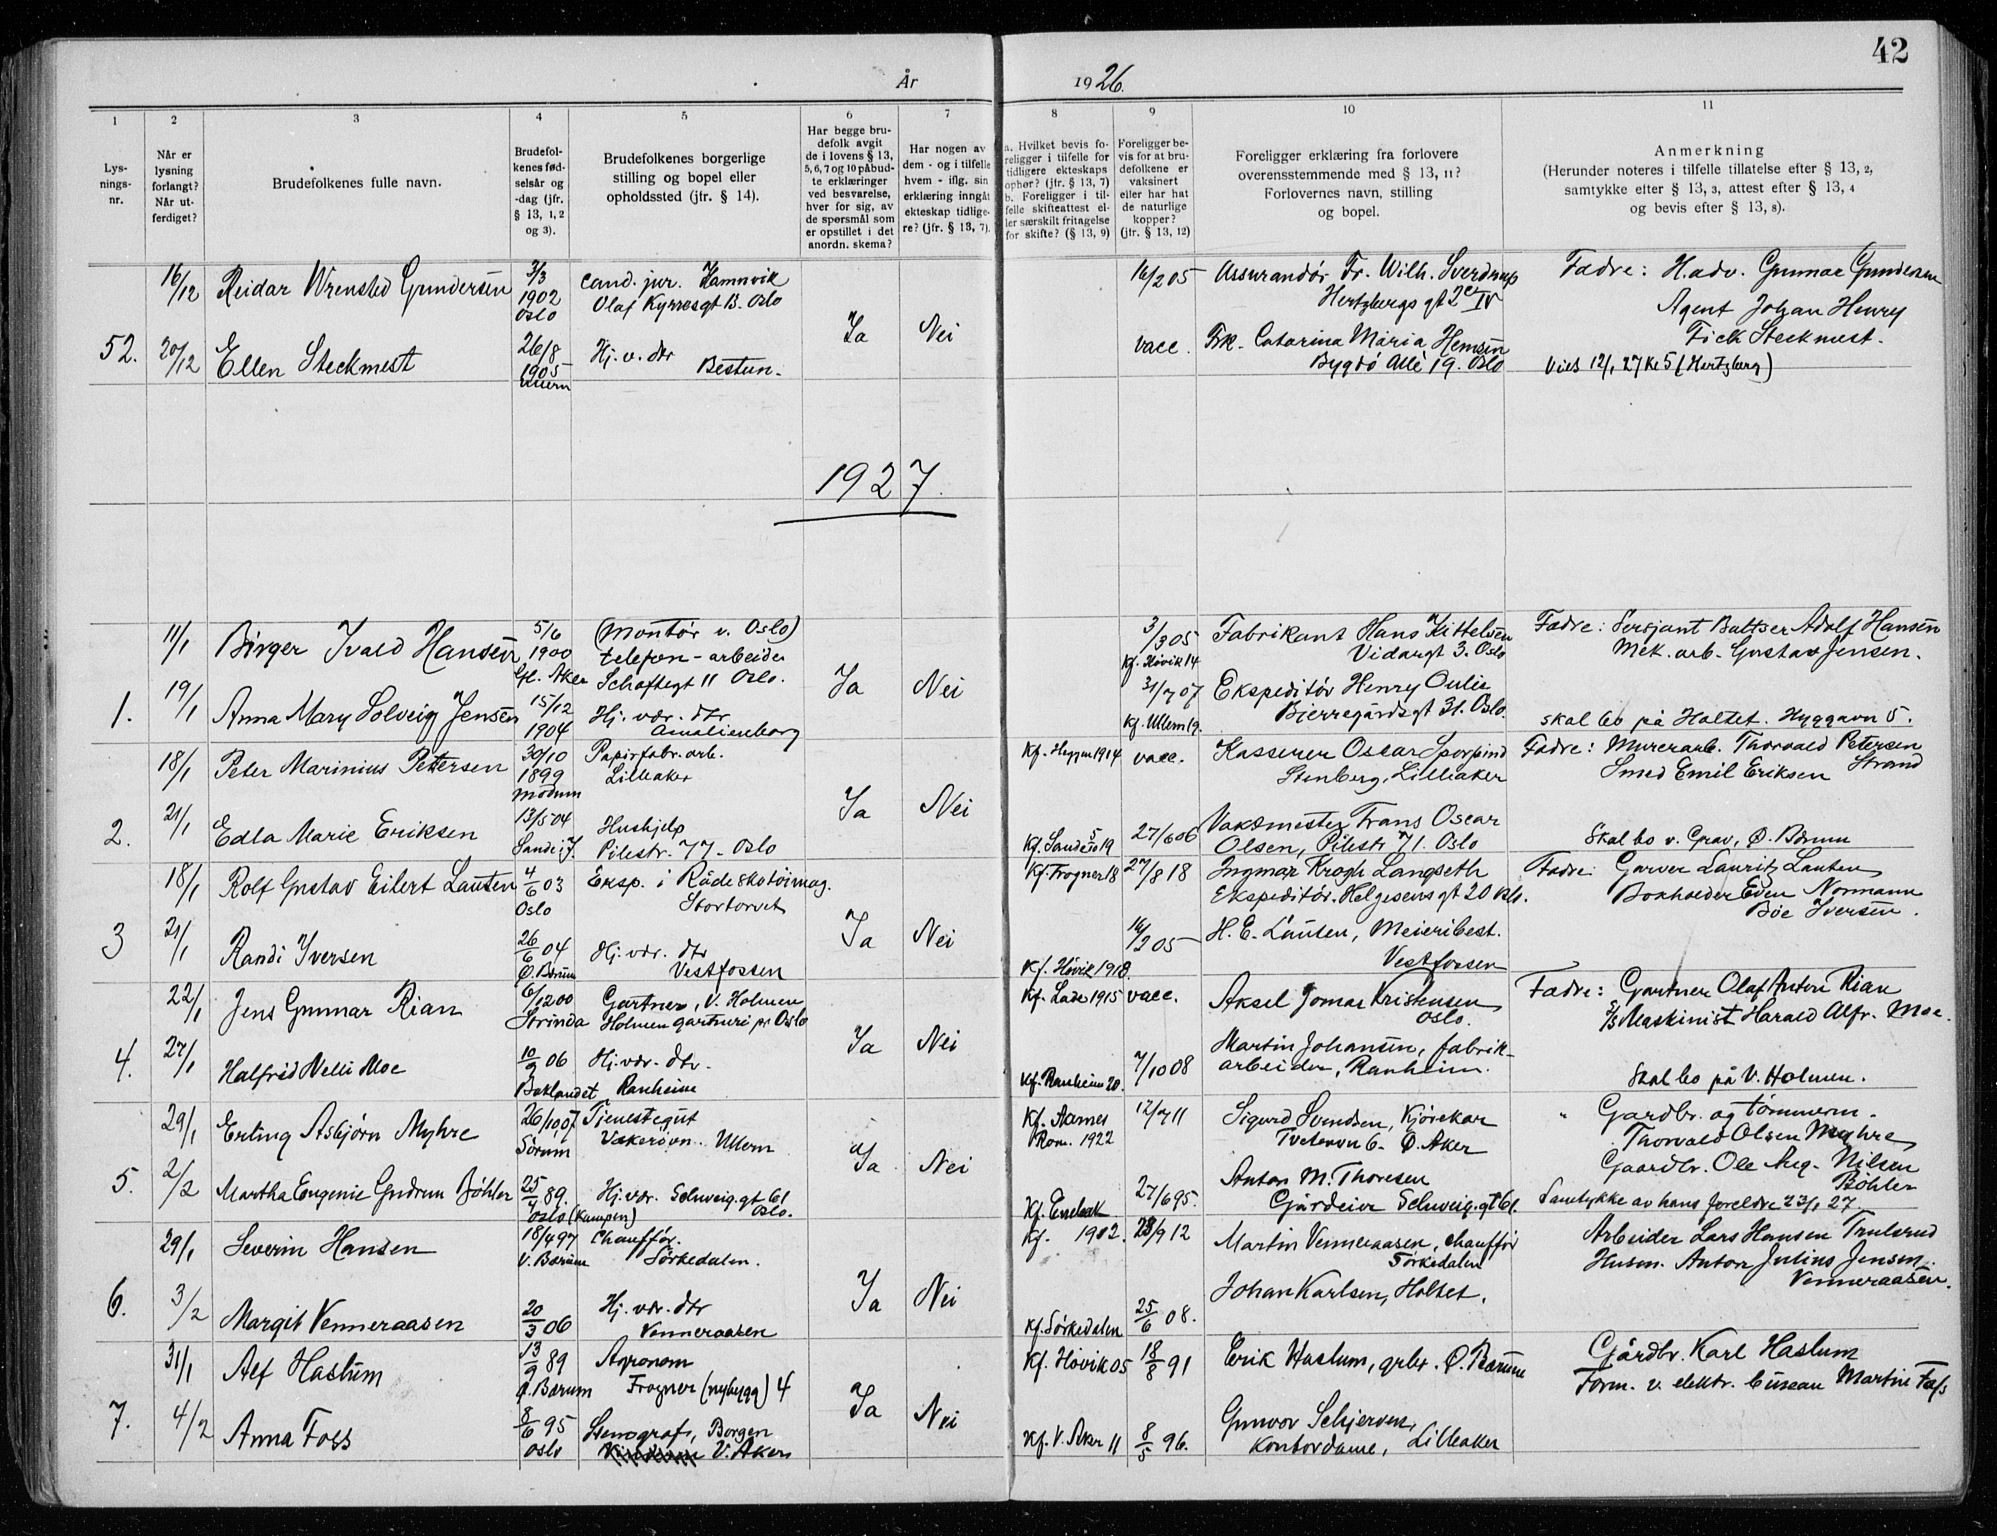 42
År 1926.
1 2 3 4 5 6 7 8 9 10 11
Lys-
nings-
nr.
Når er
lysning
forlangt?
Når ut-
ferdiget?
Brudefolkenes fulle navn.
Brudefol-
kenes fød-
selsår og
-dag (jfr.
§ 13, 1, 2
og 3).
Brudefolkenes borgerlige
stilling og bopel eller
opholdssted (jfr. § 14).
Har begge bru-
defolk avgit
de i lovens § 13,
5, 6, 7 og 10 påbud-
te erklæringer
ved besvarelse,
hver for sig, av
de spørsmål som
er opstillet i det
anordn. skema?
Har nogen av
dem - og i tilfelle
hvem - iflg. sin
erklæring inngåt
ekteskap tidlige-
re? (jfr. § 13, 7).
a. Hvilket bevis fo-
religger i tilfelle for
tidligere ekteskaps
ophør? (jfr. § 13, 7)
b. Foreligger i til-
felle skifteattest el-
ler særskilt fritagelse
for skifte? (§ 13, 9)
Foreligger be-
vis for at bru-
defolkene er
vaksinert
eller har hat
de naturlige
kopper?
(jfr. § 13, 12)
Foreligger erklæring fra forlovere
overensstemmende med § 13, 11?
Forlovernes navn, stilling
og bopel.
Anmerkning
(Herunder noteres i tilfelle tillatelse efter § 13, 2,
samtykke efter § 13, 3, attest efter § 13, 4
og bevis efter § 13, 8).
16/12 Reidar Wrensted Gundersen 3/3 1902 Oslo cand. jur. Hamnvik
Olaf Kyrresgt B. Oslo
16/2 05 Assurandør Fr. Wilh. Sverdrup
Hertzbergs gt 2 IV
Fædre: H.adv. Gunnar Gundersen
Agent Johan Henry
Fick Steckmest.
52. 20/12 Ellen Steckmest 26/8 1905 Ullern Hj. v. dtr
Bestun.
Ja Nei
vacc. Frk. Catarina Maria Hemsen
Bygdø Allé 19. Oslo
Viet 12/1 27 Kl 5 (Hertzberg)
1927.
11/1 Birger Ivald Hansen 5/6 1900 Gl. Aker (Montør v. Oslo)
telefon-arbeider
Schaftegt 11 Oslo.
Kf. Høvik 14 3/3 05 Fabrikant Hans Kittelsen
Vidargt 3. Oslo
Fædre: Sersjant Baltser Adolf Hansen
Mek. arb. Gustav Jensen.
1. 19/1 Anna Mary Solveig Jensen 15/12 1904 Hj. vær. dtr
Amalienborg
Ja Nei
Kf. Ullern 19. 31/7 07 Ekspeditør Henry Oulie
Bjerregårdsgt 31. Oslo.
Skal bo på Holtet. Hyggavn 5.
18/1 Peter Marinius Pettersen 30/10 1899 Modum Papirfabr. arb.
Lilleaker
Kf. Heggen 1914 vacc. Kasserer Oscar
Stenberg, Lilleaker
Fædre: Murerarb. Thorvald Petersen
Strand
Smed Emil Eriksen
2. 21/1 Edla Marie Eriksen 13/5 04 Sande i J. Hushjelp
Pilestr. 77 - Oslo
Ja Nei
Kf. Sande 19 27/6 06 Vaktmester Frans Oscar
Olsen, Pilestr 71. Oslo
Skal bo v. Grav, Ø. Bærum
18/1 Rolf Gustav Eilert Lauten 4/6 03 Oslo Eksp. i Råde skotøimag.
Stortorvet
Kf. Frogner 18 27/8 18 Ingmar Krogh Langseth
Ekspeditør. Helgesens gt 20 Oslo.
Fædre: Garver Lauritz Lauten
Bokholder Even Normann
Bøe Iversen.
3 21/1 Randi Iversen 26/6 04 Ø. Bærum Hj. vær. dtr
Vestfossen
Ja Nei
Kf. Høvik 1918. 16/2 05 H. E. Lauten, Meieribest.
Vestfossen
22/1 Jens Gunnar Rian 6/12 00 Strinda Gartner, V. Holmen
Holmen gartneri pr Oslo
Kf. Lade 1915 vacc. Aksel Jomar Kristensen
Oslo.
Fædre: Gartner Olaf Anton Rian
Maskinist Harald Alfr. Moe.
4. 27/1 Halfrid Nelli Moe 10/2 06 Baklandet Hj. vær. dtr.
Ranheim
Ja Nei
Kf. Ranheim 20. 7/10 08 Martin Johansen, fabrik-
arbeider, Ranheim.
Skal bo på V. Holmen.
29/1 Erling Asbjørn Myhre 26/10 07 Sørum Tjenestegut
Vækerøvn. Ullern
Kf. Aarnes
Rom. 1922 12/7 11 Sigurd Svendsen, Kjørekar
Tvetenvn 6. Ø. Aker
" Gardbr. og tømmerm.
Thorvald Olsen Myhre
Gaardbr. Ole Aug. Nilsen
Bøhler
5. 2/2 Martha Eugenie Gudrun Bøhler 25/7 89. Oslo (Kampen) Hj. vær. Schweig. gt 61
Oslo.
Ja Nei
Kf. Enebak 27/6 95 Anton M. Thoresen
Gårdeier Schweig. gt 61.
Samtykke av hans foreldre 23/1 27.
29/1 Severin Hansen 18/4 97 V. Bærum Chauffør.
Sørkedalen.
Kf. 1912. 23/9 12 Martin Venneraasen, chauffør
Sørkedalen
Arbeider Lars Hansen Trulsrud
Husm. Anton Julius Jensen
Venneraasen.
6. 3/2 Margit Venneraasen 20/3 06 Hj. vær. dtr
Venneraasen
Ja Nei
Kf. Sørkedalen 25/6 08. Johan Karlsen, Holtet.
31/1 Alf Haslum 13/9 89 Ø. Bærum Agronom
Frogner (nybygg) 4
Kf. Høvik 05 18/8 91 Erik Haslum, grbr. Ø. Bærum
Gårdbr. Karl Haslum
Form. v. elektr. bureau Martin Foss
7. 4/2 Anna Foss 8/6 95 Oslo Stenograf, Borgen
V. Aker
Ja Nei
Kf. V. Aker 11 8/5 96. Gunvor Schjerven,
Kontordame, Lilleaker